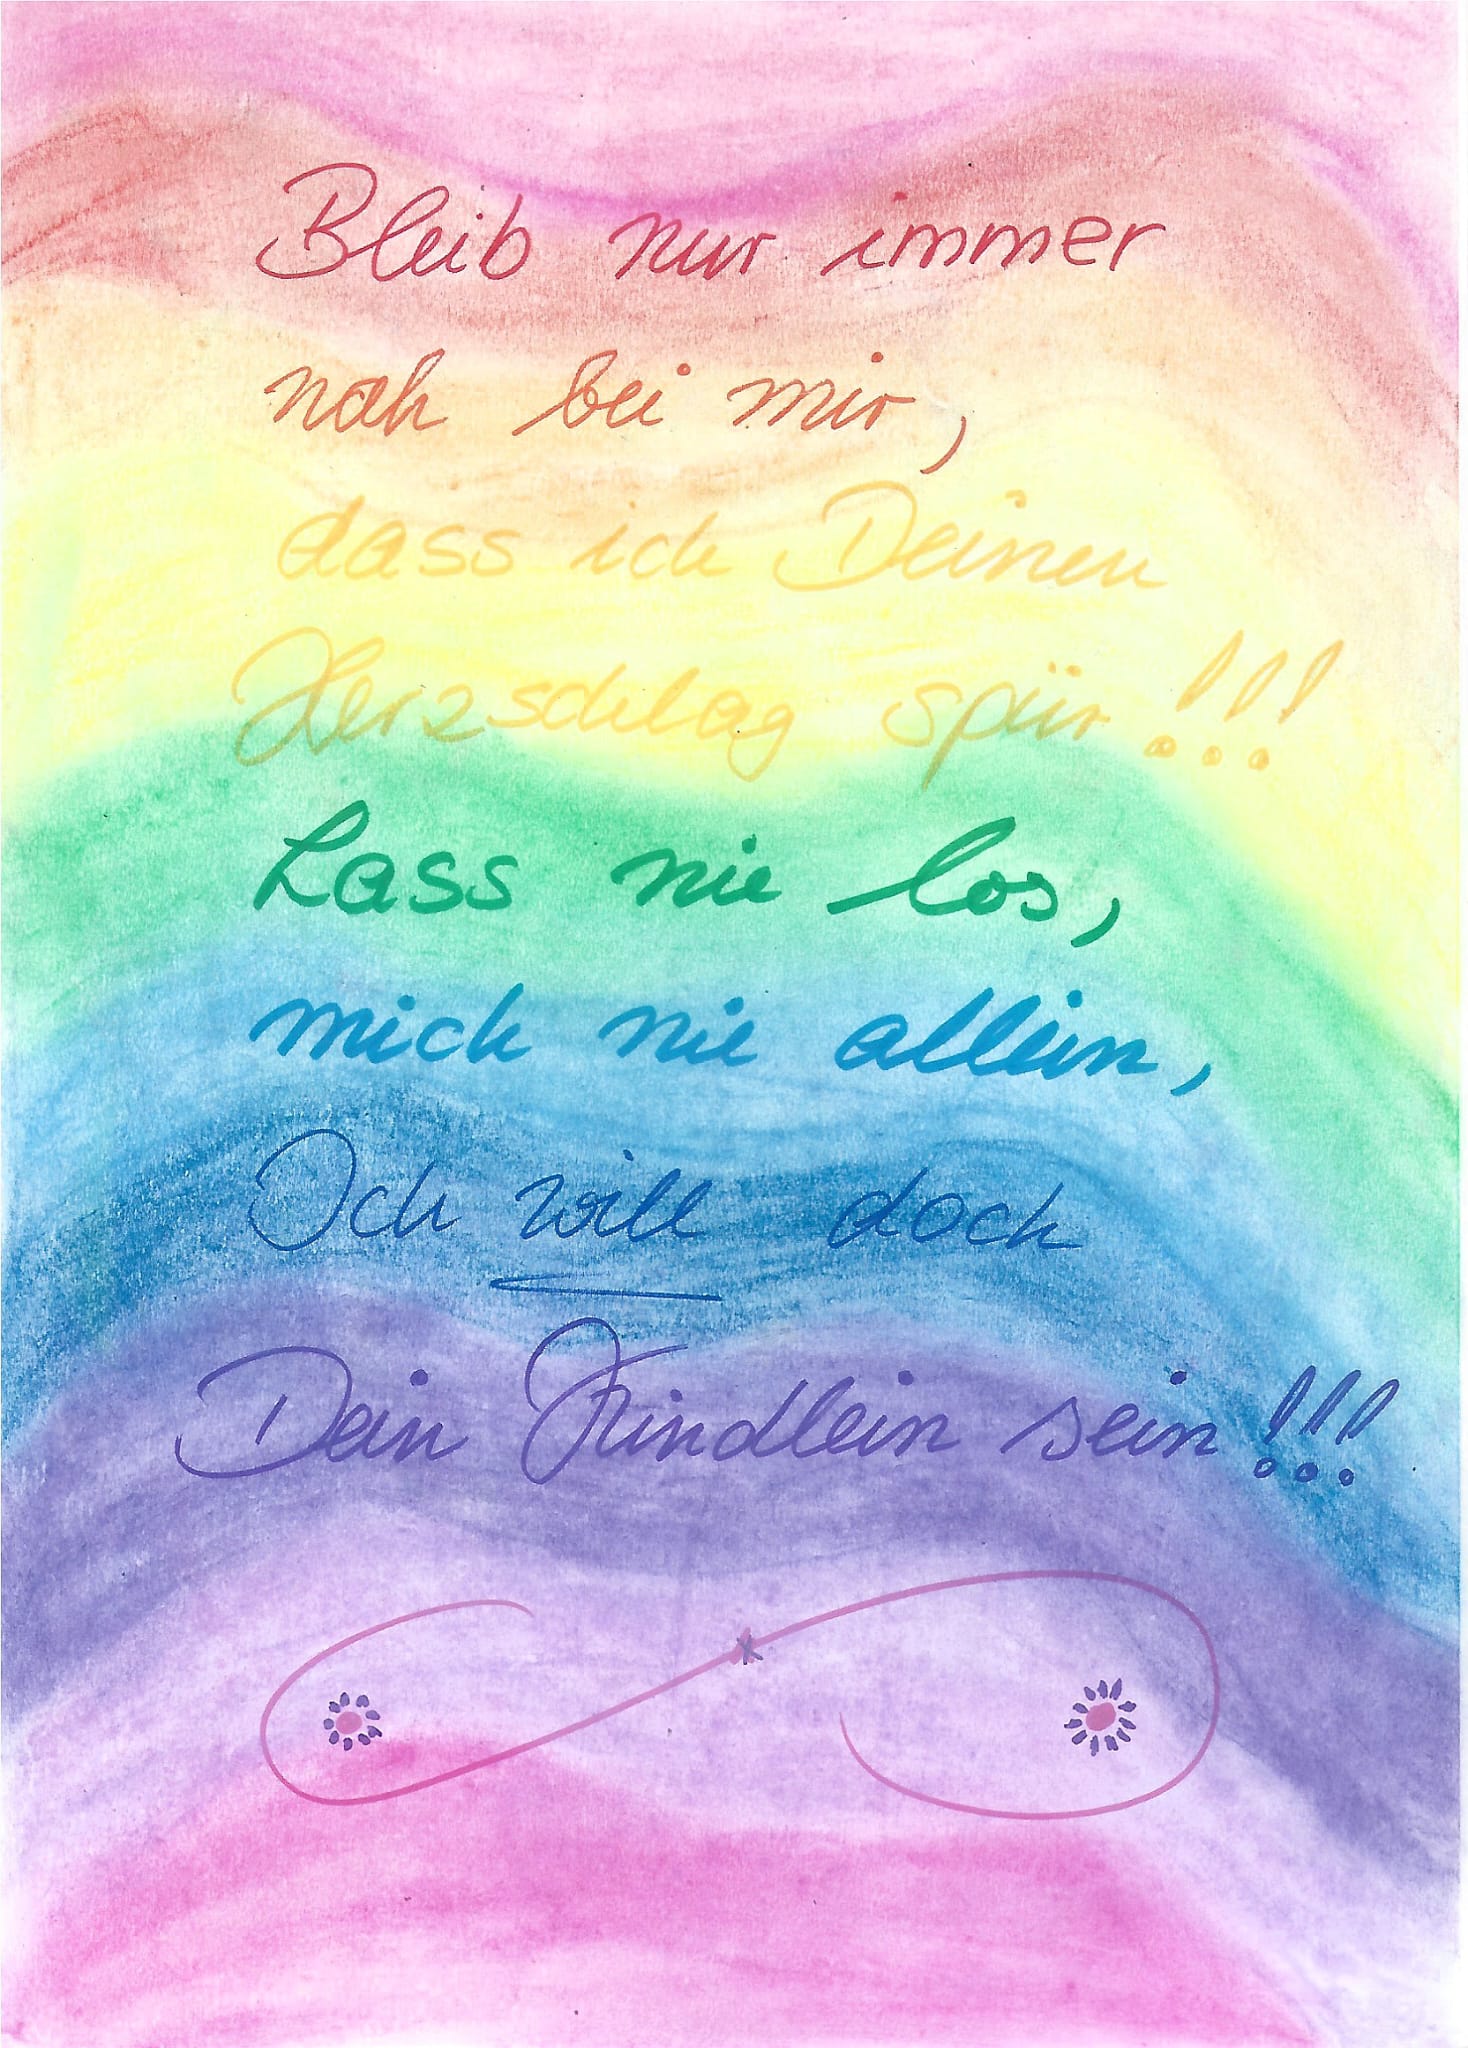 Bleib nur immer
nah bei mir,
dass ich Deinen
Herzschlag spür!!!
Lass nie los,
mich nie allein,
Ich will doch
Dein Kindlein sein!!!